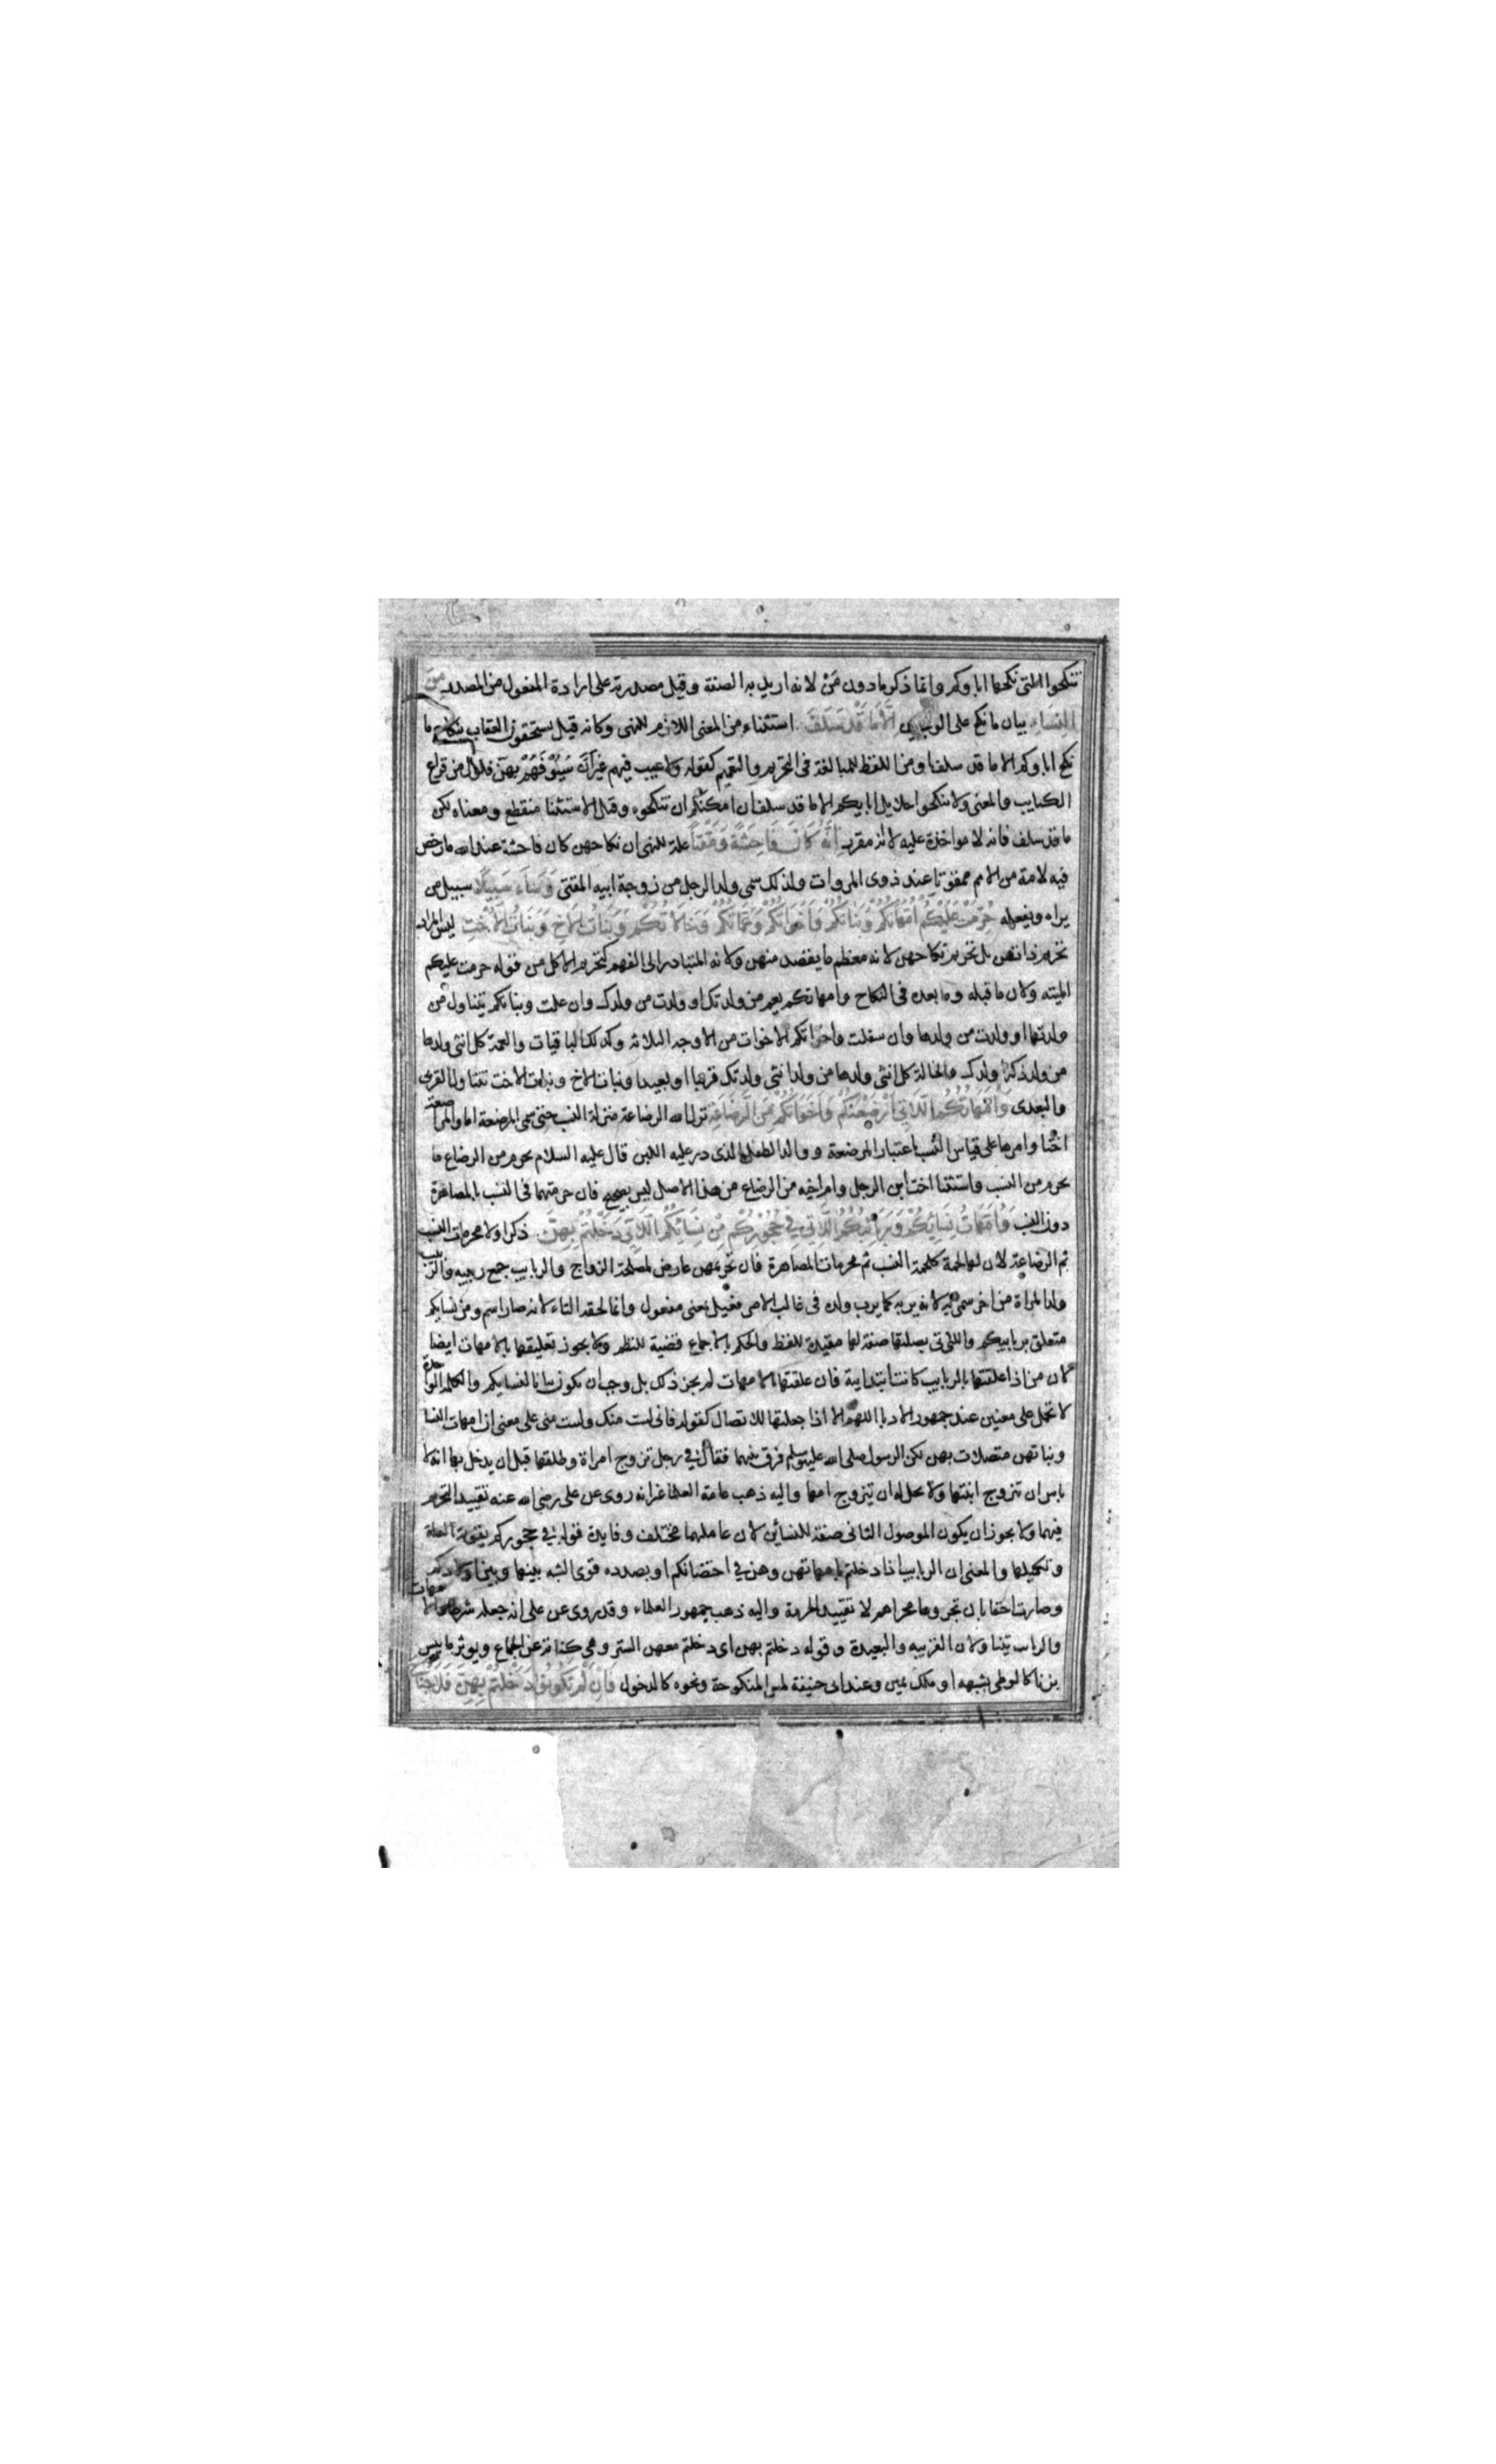 تنكحوا التي نكحها اباوكم وانما ذكر ما دون مَنْ لانه اريد به الصفة وقيل مصدرية على ارادة المفعول من المصدر مِنَ
النِّسَاءِ بيان ما نكح على الوجهين اِلَّا مَا قَدْ سَلَفَ استثناء من المعنى اللازم للنهى وكانه قيل يستحقون العقاب بنكاح ما
نكح اباوكم الا ما قد سلف او من اللفظ للمبالغة فى التحريم والتعميم كقوله ولا عيب فيهم غير اَنَّ سُيُوْفَهُمْ بهنّ فلول من قراع
الكتايب والمعنى ولا تنكحوا حلايل ابايكم الا ما قد سلف ان امكنكم ان تنكحوه وقيل الاستثنا منقطع ومعناه لكن
ما قد سلف فانه لا مواخذة عليه لا انه مقرر اِنَّهُ كَانَ فَاحِشَةً وَمَقْتًا علة للنهى ان نكاحهن كان فاحشة عند الله ما رخص
فيه لامة من الامم ممقوتا عند ذوى المروات ولذلك سمى ولد الرجل من زوجة ابيه المقتى وَسَاءَ سَبِيْلًا سبيل من
يراه ويفعله حُرِّمَتْ عَلَيْكُمْ اُمَّهَاتُكُمْ وَبَنَاتُكُمْ وَاَخَوَاتُكُمْ وَعَمَّاتُكُمْ وَخَالَاتُكُمْ وَبَنَاتُ الْاَخِ وَبَنَاتُ الْاُخْتِ ليس المراد
تحريم ذاتهن بل تحريم نكاحهن لانه معظم ما يقصد منهن ولانه المتبادر الى الفهم كتحريم الاكل من قوله حرمت عليكم
الميتة ولان ما قبله وما بعده فى النكاح وامهاتكم يعم من ولدتك او ولدت من ولدك وان علت وبناتكم يتناول من
ولدتها او ولدت من ولدها وان سفلت واخواتكم الاخوات من الاوجه الثلاثة وكذلك الباقيات والعمة كل انثى ولدها
من ولد ذكرا ولدك والخالة كل انثى ولدها من ولد انثى ولدتك قريبا او بعيدا وبنات الاخ وبنات الاخت تتناول القربى
والبعدى وَاُمَّهَاتُكُمُ اللَّاتِي اَرْضَعْنَكُمْ وَاَخَوَاتُكُمْ مِنَ الرَّضَاعَةِ نزل الله الرضاعة منزلة النسب حتى سمى المرضعة اما والمراضعة
اختا وامرها على قياس النسب باعتبار المرضعة ووالد الطفل الذى در عليه اللبن قال عليه السلام يحرم من الرضاع ما
يحرم من النسب واستثنا اخت ابن الرجل وام اخيه من الرضاع من هذا الاصل ليس بصحيح فان حرمتهما فى النسب بالمصاهرة
دون النسب وَاُمَّهَاتُ نِسَائِكُمْ وَرَبَائِبُكُمُ اللَّاتِي فِي حُجُوْرِكُمْ مِنْ نِسَائِكُمُ اللَّاتِي دَخَلْتُمْ بِهِنَّ ذكر اولا محرمات النسب
ثم الرضاعة لان لها لحمة كلحمة النسب ثم محرمات المصاهرة فان تحريمهن عارض لمصلحة الزواج والربايب جمع ربيبه والربيب
ولد المراة من اخر سمى به لانه يربه كما يرب ولده فى غالب الامر فعيل بمعنى مفعول وانما لحقه التاء لانه صار اسم ومن نسايكم
متعلق بربايبكم واللتى بصلتها صفة لها مقيدة للفظ والحكم بالاجماع قضية للنظم ولا يجوز تعليقها بالامهات ايضا
لان من اذا علقتها بالربايب كانت ابتدايية فان علقتها بالامهات لم يجز ذلك بل وجب ان تكون بيانا لنسايكم والكلمة الواحدة
لا تحمل على معنيين عند جمهور الادبا اللهم الا اذا جعلتها للاتصال كقوله فانى لست منك ولست منى على معنى ان امهات النسا
وبناتهن متصلات بهن لكن الرسول صلى الله عليه وسلم فرق بينهما فقال في رجل تزوج امراة وطلقها قبل ان يدخل بها انه لا
باس ان تزوج ابنتها ولا يحل له ان يتزوج امها واليه ذهب عامة العلما غير انه روى عن على رضى الله عنه تقييد التحريم
فيهما ولا يجوز ان يكون الموصول الثانى صفة للنسائين لان عاملهما مختلف وفايدة قوله في حجوركم تقوية العلة
وتكميلها والمعنى ان الربايب اذا دخلتم بامهاتهن وهن في احتضانكم او بصدده قوى الشبه بينها وبين اولادكم
وصارت احقا بان تجروها مجراهم لا تقييد الحرمة واليه ذهب جمهور العلماء وقد روى عن على انه جعله شرطا والامهات
والربايب تتناولان القريبه والبعيدة وقوله دخلتم بهن اى دخلتم معهن الستر وهى كناية عن الجماع ويوثر ما ليس
بزنا كالوطى بشبهه او ملك يمين وعند ابى حنيفة لمس المنكوحة ونحوه كالدخول فَاِنْ لَمْ تَكُوْنُوْا دَخَلْتُمْ بِهِنَّ فَلَا جُنَاحَ